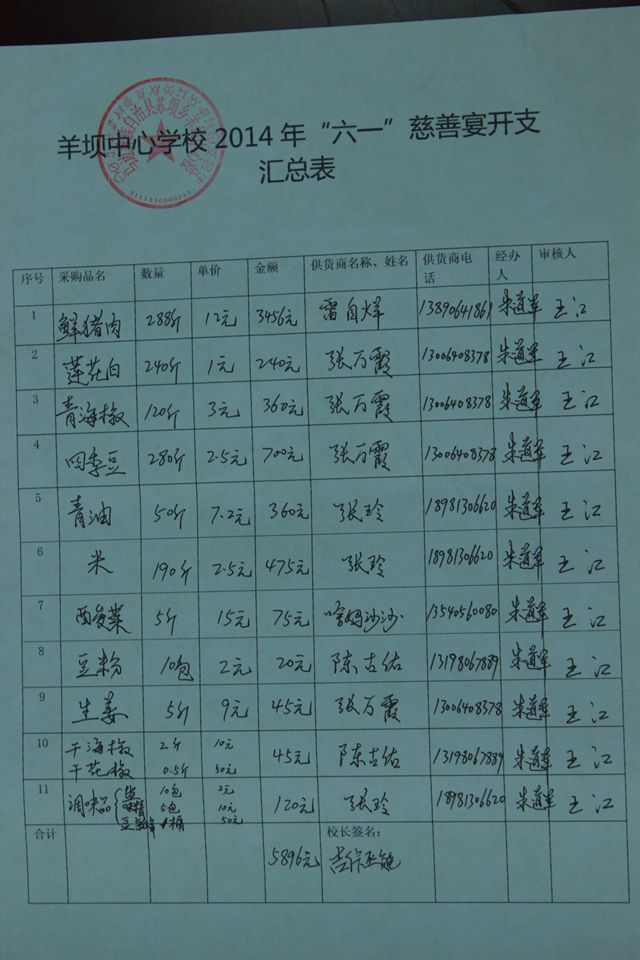 羊坝中心学校2014年“六一”慈善宴开支
汇总表
序号 采购品名 数量 单价 金额 供货商名称、姓名 供货商电话 经办人 审核人
1 鲜猪肉 288斤 12元 3456元 雷自祥 13890641861 朱道军 王江
2 莲花白 240斤 1元 240元 张万霞 13006408378 朱道军 王江
3 青海椒 120斤 3元 360元 张万霞 13006408378 朱道军 王江
4 四季豆 280斤 2.5元 700元 张万霞 13006408378 朱道军 王江
5 青油 50斤 7.2元 360元 张玲 18981306620 朱道军 王江
6 米 190斤 2.5元 475元 张玲 18981306620 朱道军 王江
7 酉菜 5斤 15元 75元 妈沙沙 13540560080 朱道军 王江
8 豆粉 10包 2元 20元 陈古佑 13198067889 朱道军 王江
9 生姜 5斤 9元 45元 张万霞 13006408378 朱道军 王江
10 干海椒 2斤 10元 45元 陈古佑 13198067889 朱道军 王江
干花椒 0.5斤 50元
11 调味品 盐 10包 2元 120元 张玲 18981306620 朱道军 王江
味精 5包 10元
豆瓣 1桶 50元
合计 5896元 校长签名: